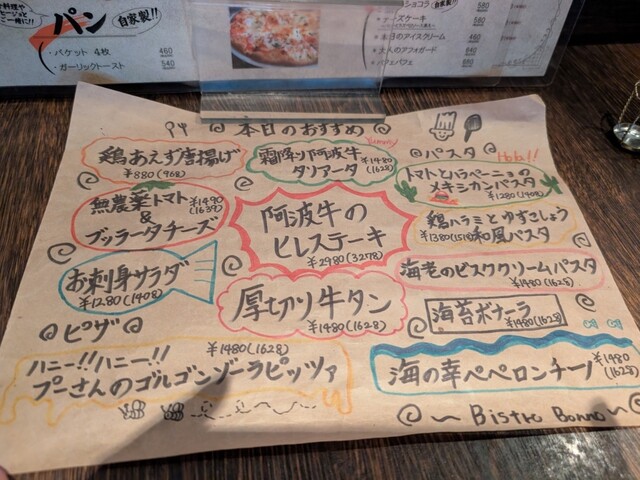 ご一緒に!!
パン
自家製!!
・バケット 4枚 460
・ガーリックトースト 540
ショコラ(自家製) 580
チーズケーキ 580
本日のアイスクリーム
大人のアフォガード 640
パフェパフェ 680
本日のおすすめ
鶏あえず唐揚げ
¥880(968)
無農薬トマト ¥1490(1639)
&
ブッラータチーズ
お刺身サラダ
¥1280(1408)
Yummy
霜降り阿波牛 ¥1480(1628)
タリアータ
阿波牛の
ヒレステーキ
¥2980(3278)
厚切り牛タン
¥1480(1628)
パスタ
Hola!!
トマトとハラペーニョの
メキシカンパスタ
¥1280(1408)
鶏ハラミとゆずこしょう
¥1380(1518)和風パスタ
海老のビスククリームパスタ
¥1480(1628)
海苔ボナーラ
¥1480(1628)
海の幸ペペロンチーノ ¥1480(1628)
ピザ
ハニー!!ハニー!!! ¥1480(1628)
プーさんのゴルゴンゾーラピッツァ
Bistro Bonno